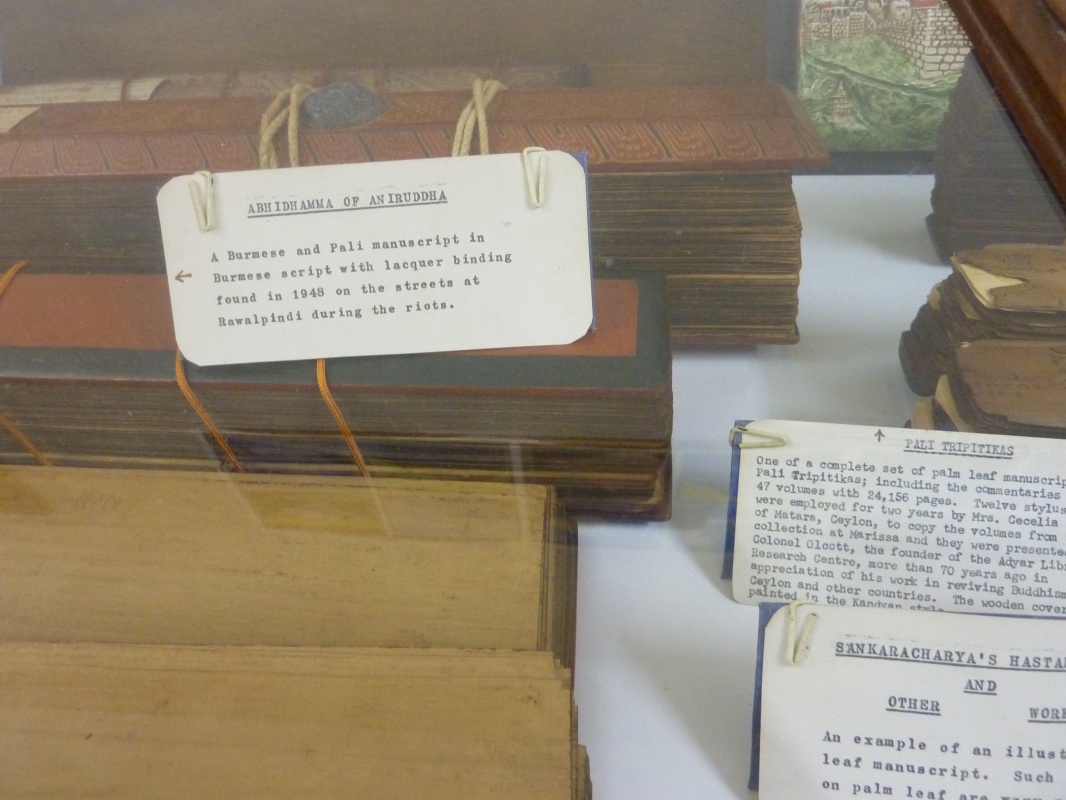 ABHIDHAMMA OF ANIRUDDHA
A Burmese and Pali manuscript in
Burmese script with lacquer binding
found in 1948 on the streets at
Rawalpindi during the riots.
PALI TRIPITIKAS
One of a complete set of palm leaf manuscrip
Pali Tripitikas; including the commentaries
47 volumes with 24,156 pages. Twelve stylus
were employed for two years by Mrs. Cecelia
of Matara, Ceylon, to copy the volumes from
collection at Marissa and they were presente
Colonel Olcott, the founder of the Adyar Lib
Research Centre, more than 70 years ago in
appreciation of his work in reviving Buddhism
Ceylon and other countries. The wooden cover
painted in the Kandyan style
SANKARACHARYA'S HASTA
AND
OTHER WOR
An example of an illust
leaf manuscript. Such
on palm leaf are very